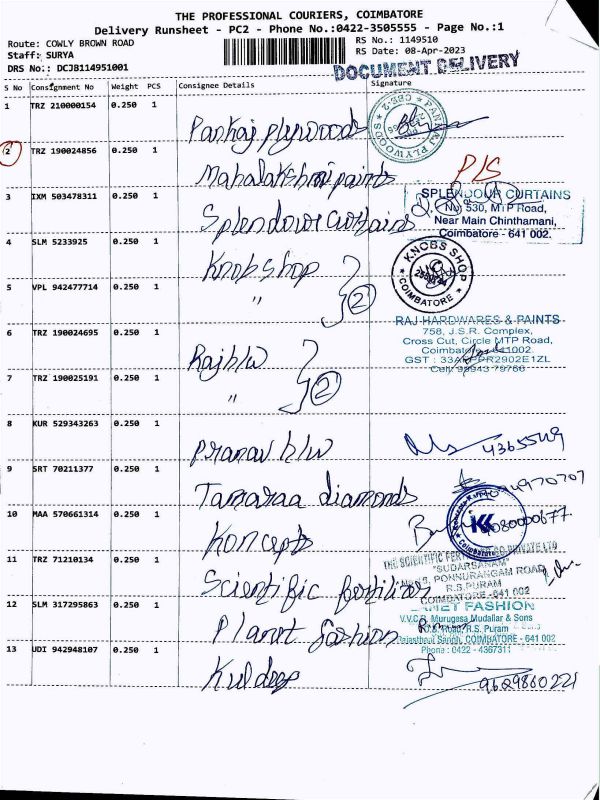 THE PROFESSIONAL COURIERS, COIMBATORE
Delivery Runsheet - PC2 - Phone No.:0422-3505555 - Page No.:1
Route: COWLY BROWN ROAD
RS No.: 1149510
Staff: SURYA
RS Date: 08-Apr-2023
DRS No.: DCJB114951001
DOCUMENT DELIVERY
S No Consignment No Weight PCS Consignee Details Signature
1 TRZ 210000154 0.250 1
Pankaj plywoods
PANKAJ PLYWOODS CBE-2
2 TRZ 190024856 0.250 1
Mahalakshmi paints
P/S
3 IXM 503478311 0.250 1
Splendour curtains
SPLENDOUR CURTAINS
No. 530, MTP Road,
Near Main Chinthamani,
Coimbatore - 641 002.
4 SLM 5233925 0.250 1
Knobshop
KNOBS SHOP
COIMBATORE
5 VPL 942477714 0.250 1
" 2
RAJ HARDWARES & PAINTS
758, J.S.R. Complex,
Cross Cut, Circle MTP Road,
6 TRZ 190024695 0.250 1
Raj h/w
Cell: 98943 79766
7 TRZ 190025191 0.250 1
" 2
8 KUR 529343263 0.250 1
Pranav h/w
4365549
9 SRT 70211377 0.250 1
Tamaraa diamonds
10 MAA 570661314 0.250 1
Koncepts
KK
Coimbatore
11 TRZ 71210134 0.250 1
Scientific fertilizer
"SUDARSANAM"
PONNURANGAM ROAD
R.S.PURAM
COIMBATORE - 641 002
12 SLM 317295863 0.250 1
Planet fashion
PLANET FASHION
V.V.C.R. Murugesa Mudaliar & Sons
R.S. Puram
COIMBATORE - 641 002
Phone : 0422 - 4367311
13 UDI 942948107 0.250 1
Kuldeep
9629860221